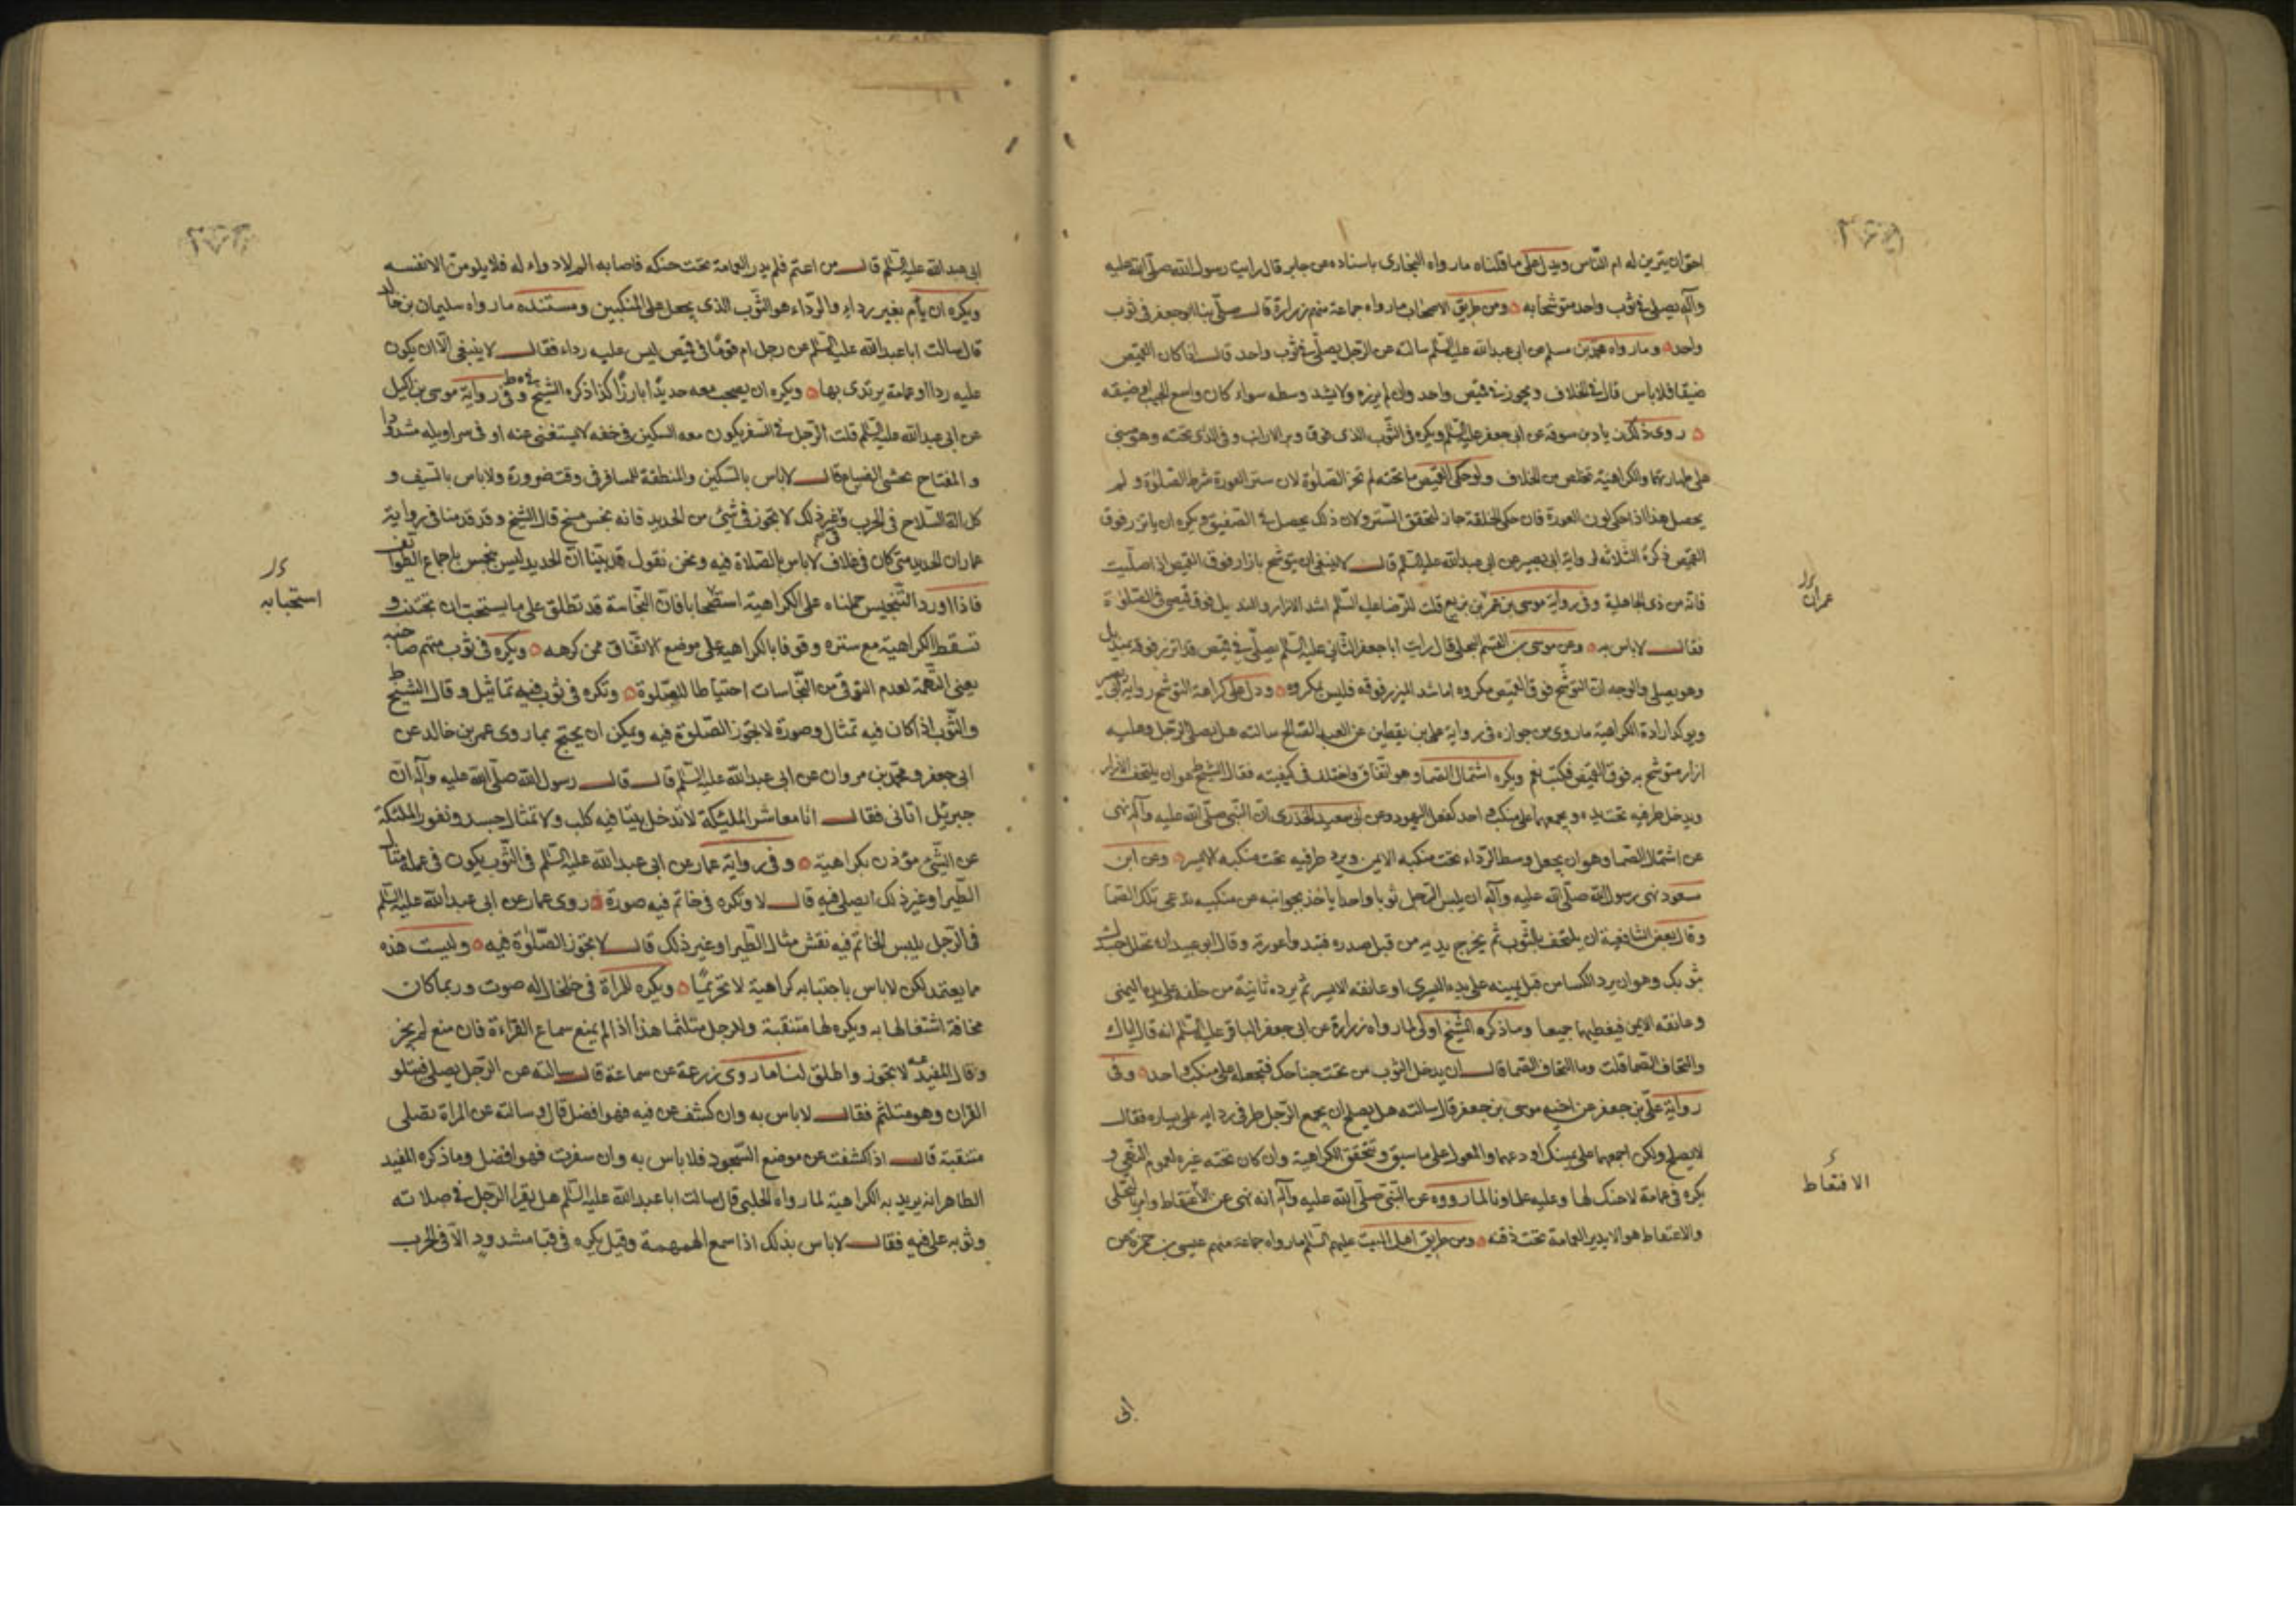 احق ان يتزين له ام الناس ويدل على ما قلناه ما رواه البخارى باسناده عن جابر قال رايت رسول الله صلى الله عليه
وآله يصلى فى ثوب واحد متوشحا به ومن طريق الاصحاب ما رواه جماعة منهم زرارة قال صلى بنا ابوجعفر فى ثوب
واحد وما رواه محمد بن مسلم عن ابى عبدالله عليه السلم سالته عن الرجل يصلى فى ثوب واحد قال اذا كان القميص
ضيقا فلا باس قال فى الخلاف ويجوز فى قميص واحد وان لم يزره ولا يشد وسطه سواء كان واسع الجيب او ضيقه
روى ذلك زياد بن سوقه عن ابى جعفر عليه السلم ويكره فى الثوب الذى فوق وبر الارانب وفى الذى تحته وهو مبنى
على طهارتها والكراهية تخلص من الخلاف ولو حكى القميص ما تحته لم تجز الصلوة لان ستر العورة شرط الصلوة ولم
يحصل هذا اذا حكى لون العورة فان حكى الخلقة جاز لتحقق الستر ولان ذلك يحصل فى الصفيق ويكره ان ياتزر فوق
القميص ذكره الثلاثه لرواية ابى بصير عن ابى عبدالله عليه السلم قال لا ينبغى ان يتوشح بازار فوق القميص اذا صليت
فانه من زى الجاهلية وفى رواية موسى بن عمر بن بزيع قلت للرضا عليه السلم اشد الازار والمنديل فوق قميصى فى الصلوة
فقال لا باس به وعن موسى بن القسم البجلى قال رايت اباجعفر الثانى عليه السلم يصلى فى قميص قد اتزر فوقه بمنديل
وهو يصلى والوجه ان التوشح فوق القميص مكروه اما شد الميزر فوقه فليس بمكروه ودل على كراهة التوشح رواية ابى بصير
ويؤكد ارادة الكراهية ما روى من جوازه فى رواية على بن يقطين عن العبد الصالح سالته هل يصلى الرجل وعليه
ازار متوشح به فوق القميص فكتب نعم ويكره اشتمال الصماء وهو اتفاق واختلف فى كيفيته فقال الشيخ هو ان يلتحف الازار
ويدخل طرفيه تحت يده ويجمعهما على منكب واحد كفعل اليهود وعن ابى سعيد الخدرى ان النبى صلى الله عليه وآله نهى
عن اشتمال الصما وهو ان يجعل وسط الرداء تحت منكبه الايمن ويرد طرفيه تحت منكبه الايسر وعن ابن
مسعود نهى رسول الله صلى الله عليه وآله ان يلبس الرجل ثوبا واحدا ياخذ بجوانبه عن منكبيه تدعى تلك الصما
وقال بعض الشافعية ان يلتحف بالثوب ثم يخرج يديه من قبل صدره فتبدوا عورته وقال ابو عبيد ان تجلل جسدك
بثوبك وهو ان يرد الكسا من قبل يمينه على يده اليسرى او عاتقه الايسر ثم يرده ثانية من خلفه على يده اليمنى
وعاتقه الايمن فيغطيهما جميعا وما ذكره الشيخ اولى لما رواه زرارة عن ابى جعفر الباقر عليه السلم انه قال اياك
والتحاف الصما قلت وما التحاف الصما قال ان يدخل الثوب من تحت جناحك فتجعله على منكب واحد وفى
رواية على بن جعفر عن اخيه موسى بن جعفر قال سالته هل يصلح ان يجمع الرجل طرفى ردائه على يساره فقال
لا يصلح ولكن اجمعهما على يمينك او دعهما والمعول على ما سبق وتتحقق الكراهية وان كان تحته غيره لعموم النهى و
يكره فى عمامة لا حنك لها وعليه علماونا لما رووه عن النبى صلى الله عليه وآله انه نهى عن الاقتعاط وامر بالتلحى
والاقتعاط هو الا يدير العمامة تحت ذقنه ومن طريق اهل البيت عليهم السلم ما رواه جماعة منهم عيسى بن حمزة عن
عمران
الاقتعاط
ابى
ابى عبدالله عليه السلم قال من اعتم فلم يدر العمامة تحت حنكه فاصابه الم لا دواء له فلا يلومن الا نفسه
ويكره ان يأم بغير رداء والرداء هو الثوب الذى يجعل على المنكبين ومستنده ما رواه سليمان بن خالد
قال سالت اباعبدالله عليه السلم عن رجل ام قوما فى قميص ليس عليه رداء فقال لا ينبغى الا ان يكون
عليه ردا او عمامة يرتدى بها ويكره ان يصحب معه حديدا بارزا كذا ذكره الشيخ فى ط وفى رواية موسى بن اكيل
عن ابى عبدالله عليه السلم قلت الرجل فى السفر يكون معه السكين فى خفه لا يستغنى عنه او فى سراويله مشدودا
والمفتاح يخشى الضياع قال لا باس بالسكين والمنطقة للمسافر فى وقت ضرورة ولا باس بالسيف و
كل الة السلاح فى الحرب وفى غير ذلك لا يجوز فى شئ من الحديد فانه نجس مسخ قال الشيخ وقد قدمنا فى رواية
عمار ان الحديد متى كان فى غلاف لا باس بالصلاة فيه ونحن نقول قد بينا ان الحديد ليس بنجس باجماع الطوائف
فاذا اورد التنجيس حملناه على الكراهية استصحابا فان النجاسة قد تطلق على ما يستحب ان تجتنب و
تسقط الكراهية مع ستره وقوفا بالكراهية على موضع الاتفاق ممن كرهه ويكره فى ثوب متهم صاحبه
يعنى التهمة لعدم التوقى من النجاسات احتياطا للصلوة وتكره فى ثوب فيه تماثيل وقال الشيخ ط
والثوب اذا كان فيه تمثال وصورة لا يجوز الصلوة فيه ويمكن ان يحتج بما روى عمر بن خالد عن
ابى جعفر ومحمد بن مروان عن ابى عبدالله عليه السلم قال قال رسول الله صلى الله عليه وآله ان
جبرئيل اتانى فقال انا معاشر الملئكة لا ندخل بيتا فيه كلب ولا تمثال جسد ونفور الملئكة
عن الشئ مؤذن بكراهية وفى رواية عمار عن ابى عبدالله عليه السلم فى الثوب يكون فى علمه مثال
الطير او غير ذلك ايصلى فيه قال لا وتكره فى خاتم فيه صورة روى عمار عن ابى عبدالله عليه السلم
فى الرجل يلبس الخاتم فيه نقش مثال الطير او غير ذلك قال لا يجوز الصلوة فيه وليست هذه
مما يعتمد لكن لا باس باجتنابه كراهية لا تحريما ويكره للمراة فى خلخال له صوت وربما كان
مخافة اشتغالها به ويكره لها متنقبة وللرجل متلثما هذا اذا لم يمنع سماع القراءة فان منع لم يجز
وقال المفيد ره لا يجوز واطلق لنا ما روى زرعة عن سماعة قال سالته عن الرجل يصلى فيتلو
القران وهو متلثم فقال لا باس به وان كشف عن فيه فهو افضل قال وسالته عن المراة تصلى
متنقبة قال اذا كشفت عن موضع السجود فلا باس به وان سفرت فهو افضل وما ذكره المفيد
الظاهر انه يريد به الكراهية لما رواه الحلبى قال سالت اباعبدالله عليه السلم هل يقرا الرجل فى صلاته
وثوبه على فيه فقال لا باس بذلك اذا سمع الهمهمة وقيل يكره فى قبا مشدود الا فى الحرب
استحبابه